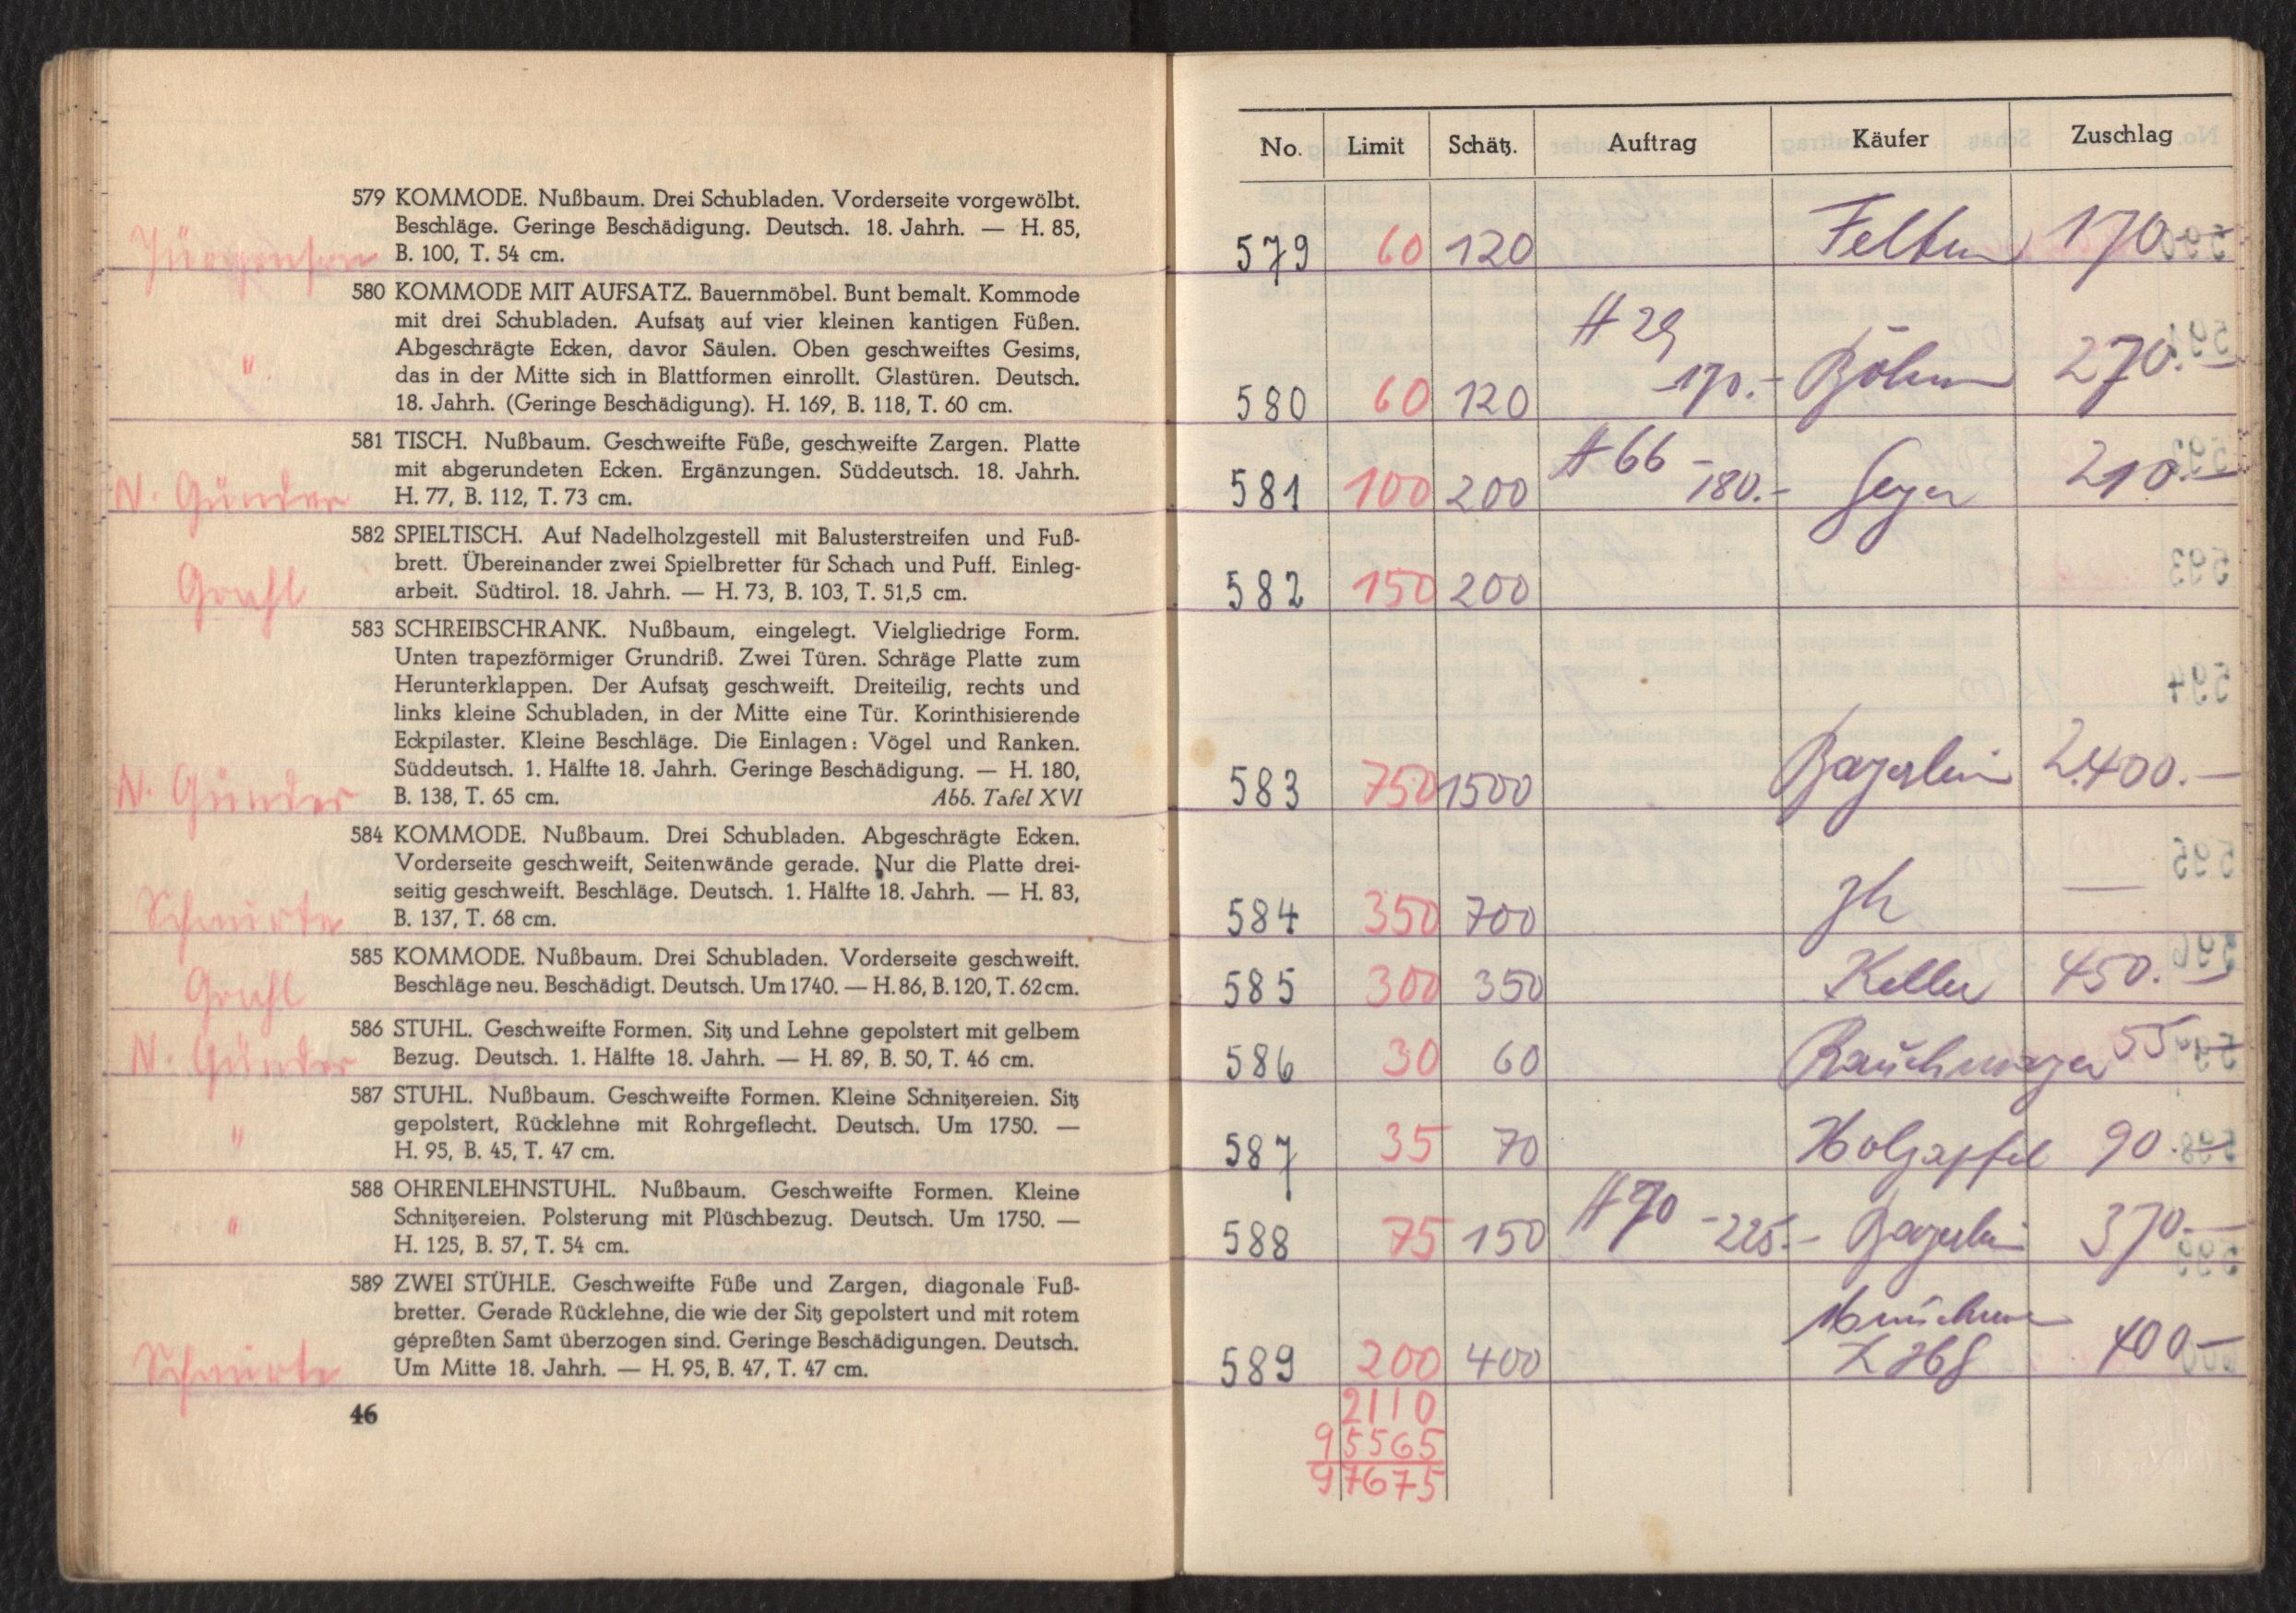 579 KOMMODE. Nußbaum. Drei Schubladen. Vorderseite vorgewölbt.
Beschläge. Geringe Beschädigung. Deutsch. 18. Jahrh. — H. 85,
B. 100, T. 54 cm.
580 KOMMODE MIT AUFSATZ. Bauernmöbel. Bunt bemalt. Kommode
mit drei Schubladen. Aufsatz auf vier kleinen kantigen Füßen.
Abgeschrägte Ecken, davor Säulen. Oben geschweiftes Gesims,
" das in der Mitte sich in Blattformen einrollt. Glastüren. Deutsch.
18. Jahrh. (Geringe Beschädigung). H. 169, B. 118, T. 60 cm.
581 TISCH. Nußbaum. Geschweifte Füße, geschweifte Zargen. Platte
mit abgerundeten Ecken. Ergänzungen. Süddeutsch. 18. Jahrh.
N. Günder H. 77, B. 112, T. 73 cm.
582 SPIELTISCH. Auf Nadelholzgestell mit Balusterstreifen und Fuß-
brett. Übereinander zwei Spielbretter für Schach und Puff. Einleg-
Grahl arbeit. Südtirol. 18. Jahrh. — H. 73, B. 103, T. 51,5 cm.
583 SCHREIBSCHRANK. Nußbaum, eingelegt. Vielgliedrige Form.
Unten trapezförmiger Grundriß. Zwei Türen. Schräge Platte zum
Herunterklappen. Der Aufsatz geschweift. Dreiteilig, rechts und
links kleine Schubladen, in der Mitte eine Tür. Korinthisierende
Eckpilaster. Kleine Beschläge. Die Einlagen: Vögel und Ranken.
Süddeutsch. 1. Hälfte 18. Jahrh. Geringe Beschädigung. — H. 180,
N. Günder B. 138, T. 65 cm. Abb. Tafel XVI
584 KOMMODE. Nußbaum. Drei Schubladen. Abgeschrägte Ecken.
Vorderseite geschweift, Seitenwände gerade. Nur die Platte drei-
seitig geschweift. Beschläge. Deutsch. 1. Hälfte 18. Jahrh. — H. 83,
B. 137, T. 68 cm.
585 KOMMODE. Nußbaum. Drei Schubladen. Vorderseite geschweift.
Grahl Beschläge neu. Beschädigt. Deutsch. Um 1740. — H. 86, B. 120, T. 62 cm.
586 STUHL. Geschweifte Formen. Sitz und Lehne gepolstert mit gelbem
N. Günder Bezug. Deutsch. 1. Hälfte 18. Jahrh. — H. 89, B. 50, T. 46 cm.
587 STUHL. Nußbaum. Geschweifte Formen. Kleine Schnitzereien. Sitz
" gepolstert, Rücklehne mit Rohrgeflecht. Deutsch. Um 1750. —
H. 95, B. 45, T. 47 cm.
588 OHRENLEHNSTUHL. Nußbaum. Geschweifte Formen. Kleine
" Schnitzereien. Polsterung mit Plüschbezug. Deutsch. Um 1750. —
H. 125, B. 57, T. 54 cm.
589 ZWEI STÜHLE. Geschweifte Füße und Zargen, diagonale Fuß-
bretter. Gerade Rücklehne, die wie der Sitz gepolstert und mit rotem
gepreßten Samt überzogen sind. Geringe Beschädigungen. Deutsch.
Um Mitte 18. Jahrh. — H. 95, B. 47, T. 47 cm.
46
No. Limit Schätz. Auftrag Käufer Zuschlag
579 60 120 170.—
580 60 120 # 29 170.- Böhm 270.—
581 100 200 # 66 - 180.- Geyer 210.—
582 150 200
583 750 1500 Bayerlein 2.400.—
584 350 700 zh —
585 300 350 Keller 450.—
586 30 60 55.—
587 35 70 Holzapfel 90.—
588 75 150 # 70 - 225.- Bayerlein 370.—
589 200 400 400.—
2110
95565
97675